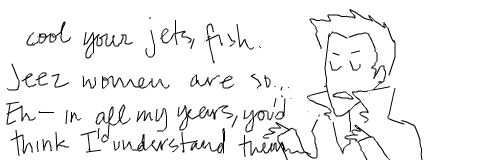 cool your jets, fish.
Jeez women are so...
Eh- in all my years, you'd
think I'd understand them